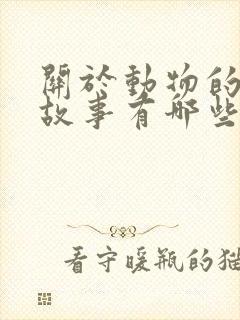 關於動物的
故事有哪些
看守暖瓶的猫